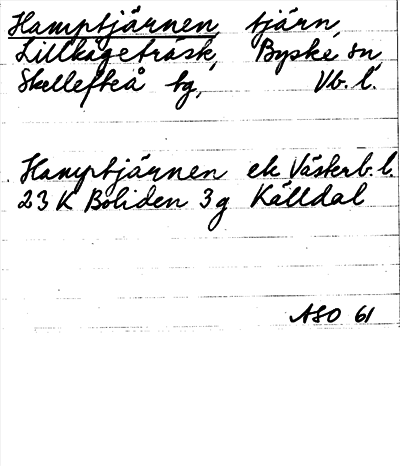 Hamptjärnen, tjärn,
Lillkågeträsk, Byske sn,
Skellefteå tg, Vb. l.
Hamptjärnen ek Västerb. l.
23 K Boliden 3g Källdal
ASO 61